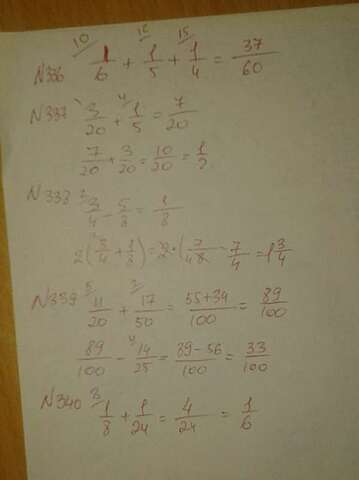 N336 10/ 1/6 + 12/ 1/5 + 15/ 1/4 = 37/60
N337 3/20 + 4/ 1/5 = 7/20
7/20 + 3/20 = 10/20 = 1/2
N338 2/ 3/4 - 5/8 = 1/8
2(3/4 + 1/8) = 2·(7/48 - 7/4 = 1 3/4
N339 5/ 11/20 + 2/ 17/50 = 55+34/100 = 89/100
89/100 - 4/ 14/25 = 89-56/100 = 33/100
N340 3/ 1/8 + 1/24 = 4/24 = 1/6